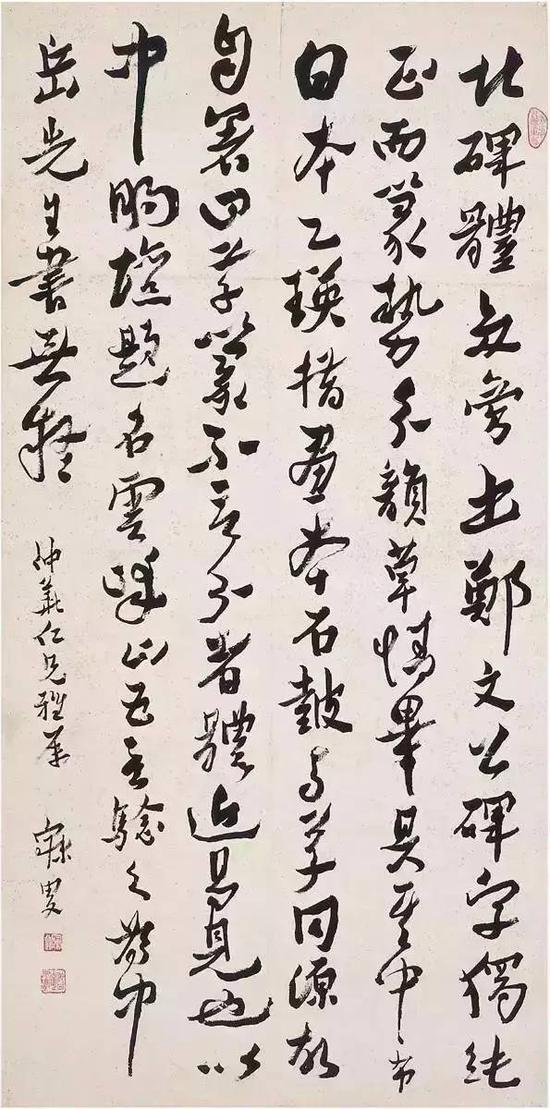 北碑體多旁出鄭文公碑字獨純
正而篆勢分韻草情畢具其中布
白本乙瑛措畫本石鼓與草同源故
自署曰草篆不言分者體近易見也以
中明壇題名雲峰山五言驗之為中
岳先生書無疑
仁兄雅屬
寐叟